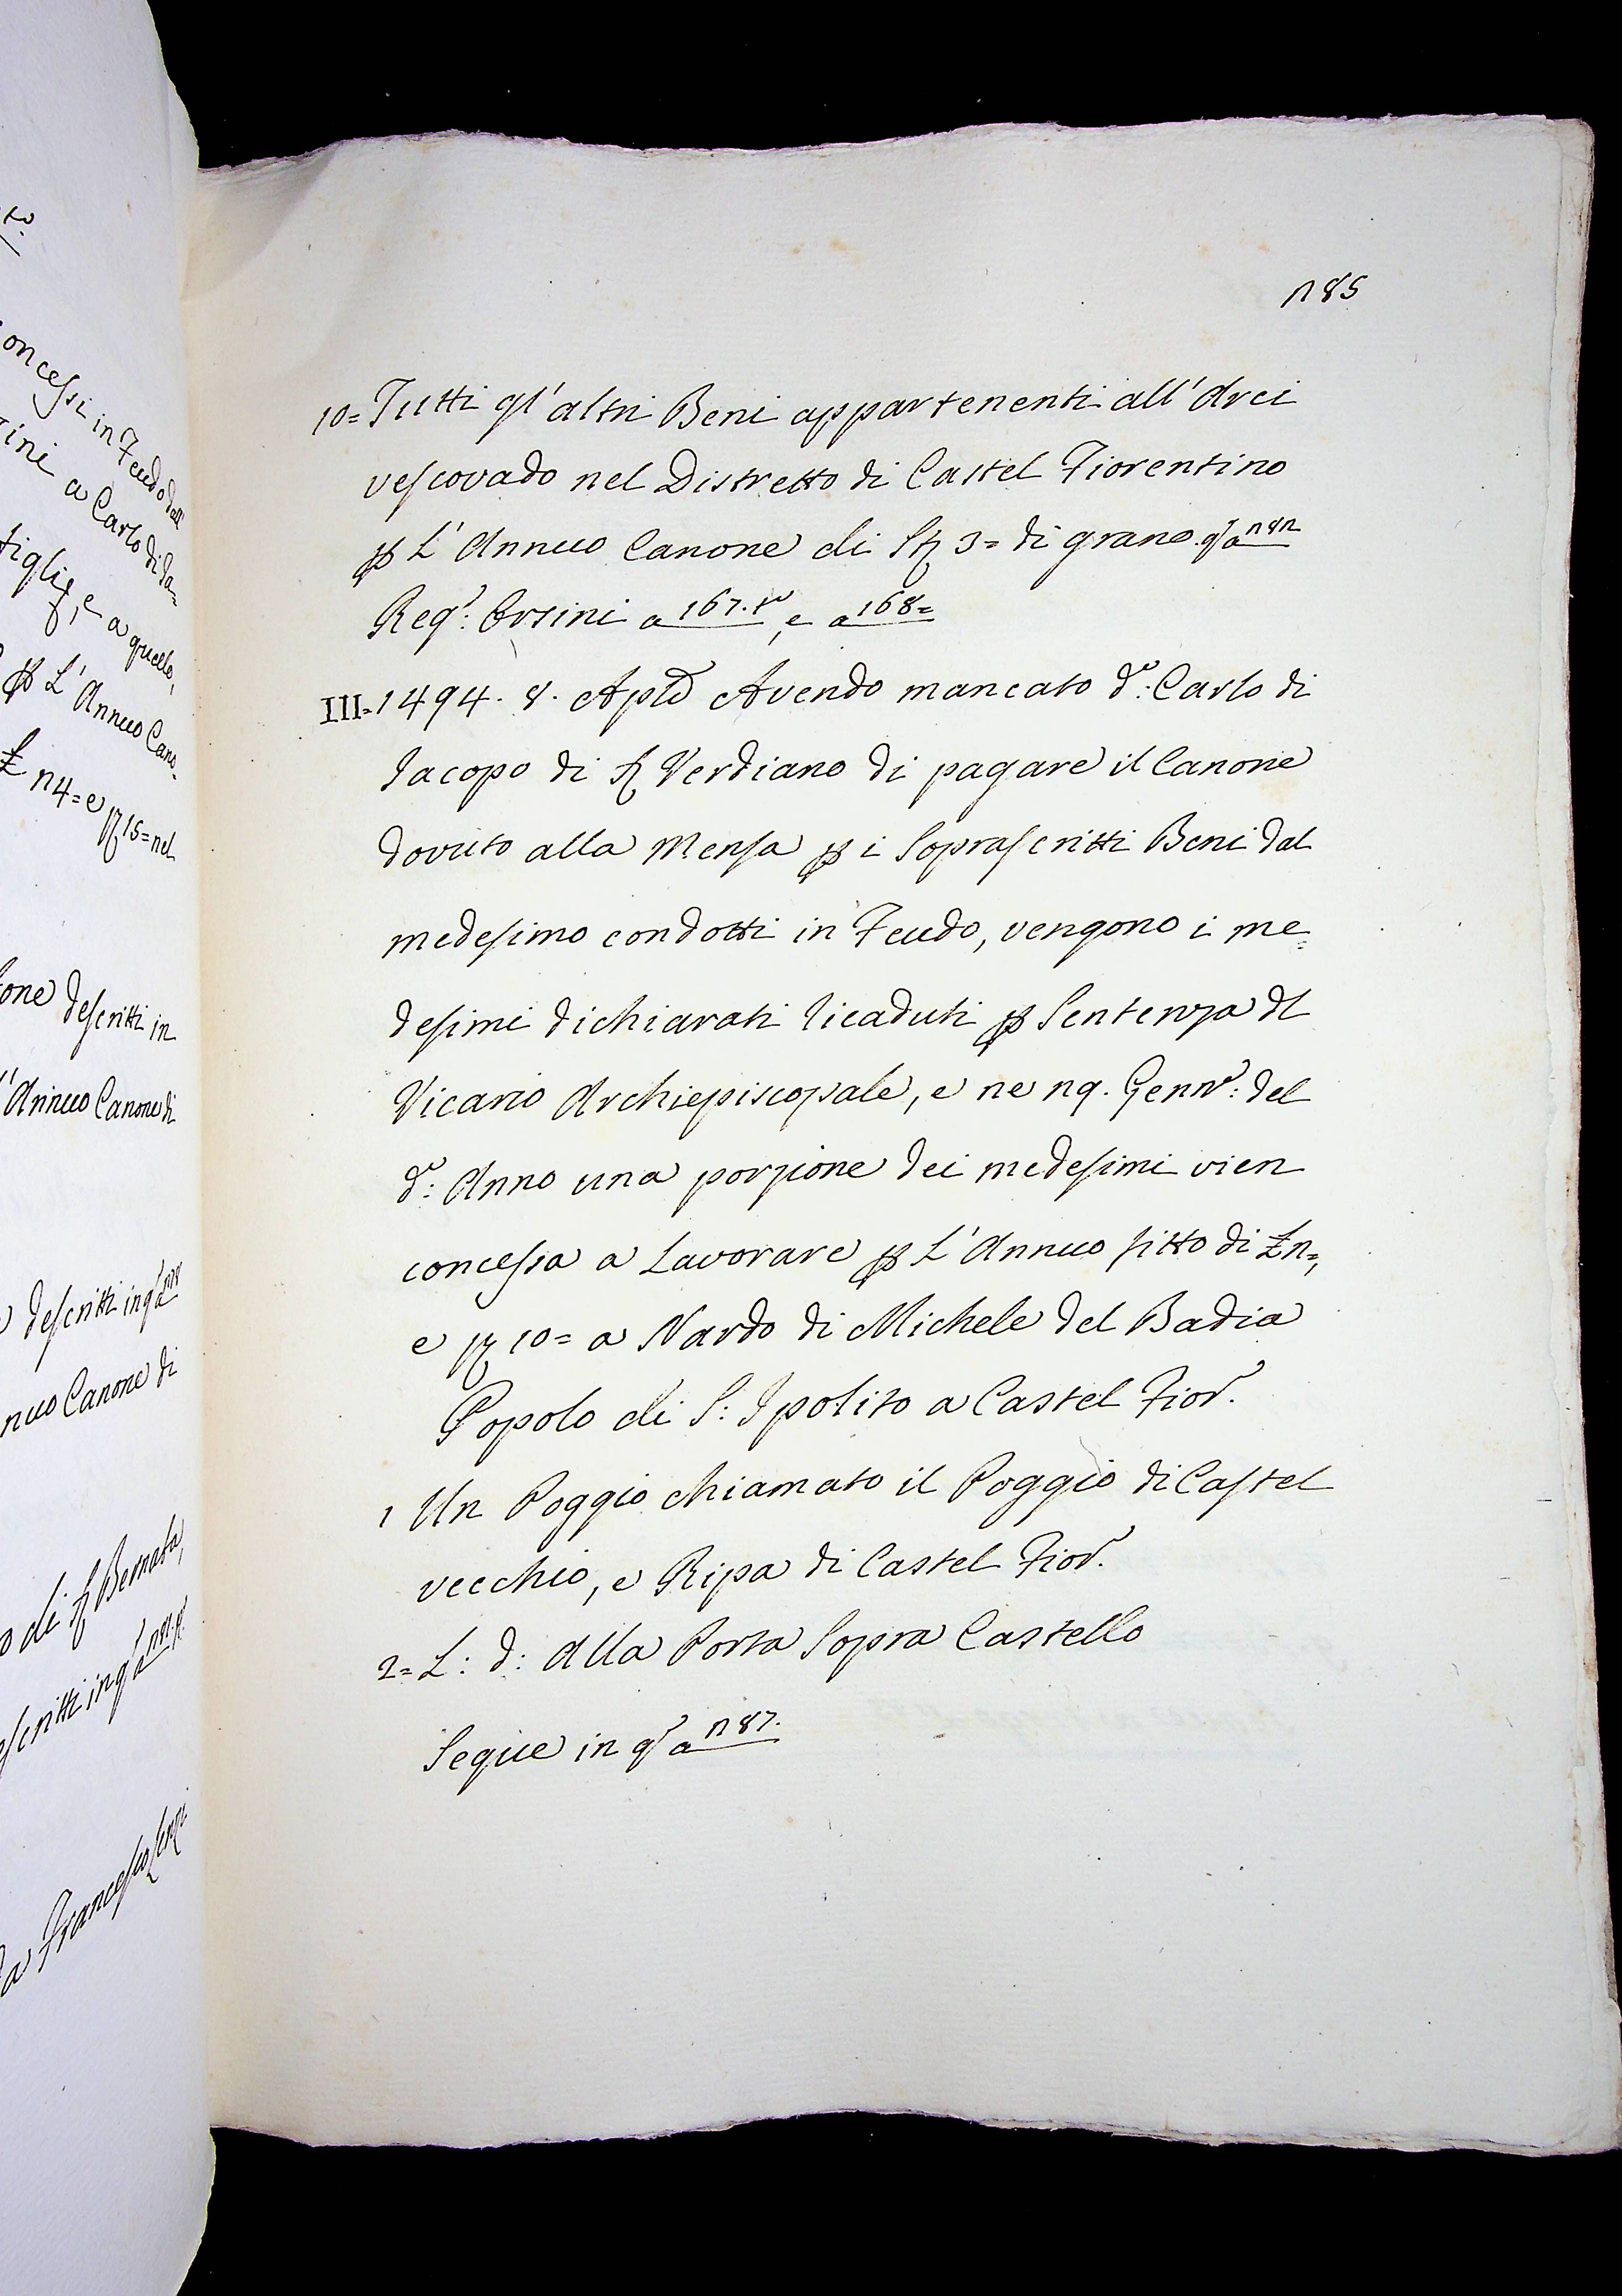 185
10= Tutti gl'altri Beni appartenenti all'Arci
vescovado nel Distretto di Castel Fiorentino
p L'Annuo Canone di St 3= di grano. qo a 182
Rego: Orsini a 167. to, e a 168=
III= 1494. 8. Aple Avendo mancato do: Carlo di
Jacopo di s Verdiano di pagare il Canone
dovuto alla Mensa p i Soprascritti Beni dal
medesimo condotti in Feudo, vengono i me=
desimi dichiarati ricaduti p Sentenza dl
Vicario Archiepiscopale, e ne 19. Gennо: del
do: Anno una porzione dei medesimi vien
concessa a Lavorare p L'Annuo fitto di £ 11=,
e st 10= a Nardo di Michele del Badia
Popolo di S: Ipolito a Castel Fiorо.
1 Un Poggio chiamato il Poggio di Castel
vecchio, e Ripa di Castel Fiorо.
2= L: d: Alla Porta Sopra Castello
Segue in qo a 187.
oncessi in Feudo dall'
a Carlo di Ja=
figli, e a quello,
p L'Annuo Cano=
£ 14= e st 15= nel
descritti in
L'Annuo Canone di
descritti in qo a
nuo Canone di
di s Bernaba,
scritti in qo a
Francesco